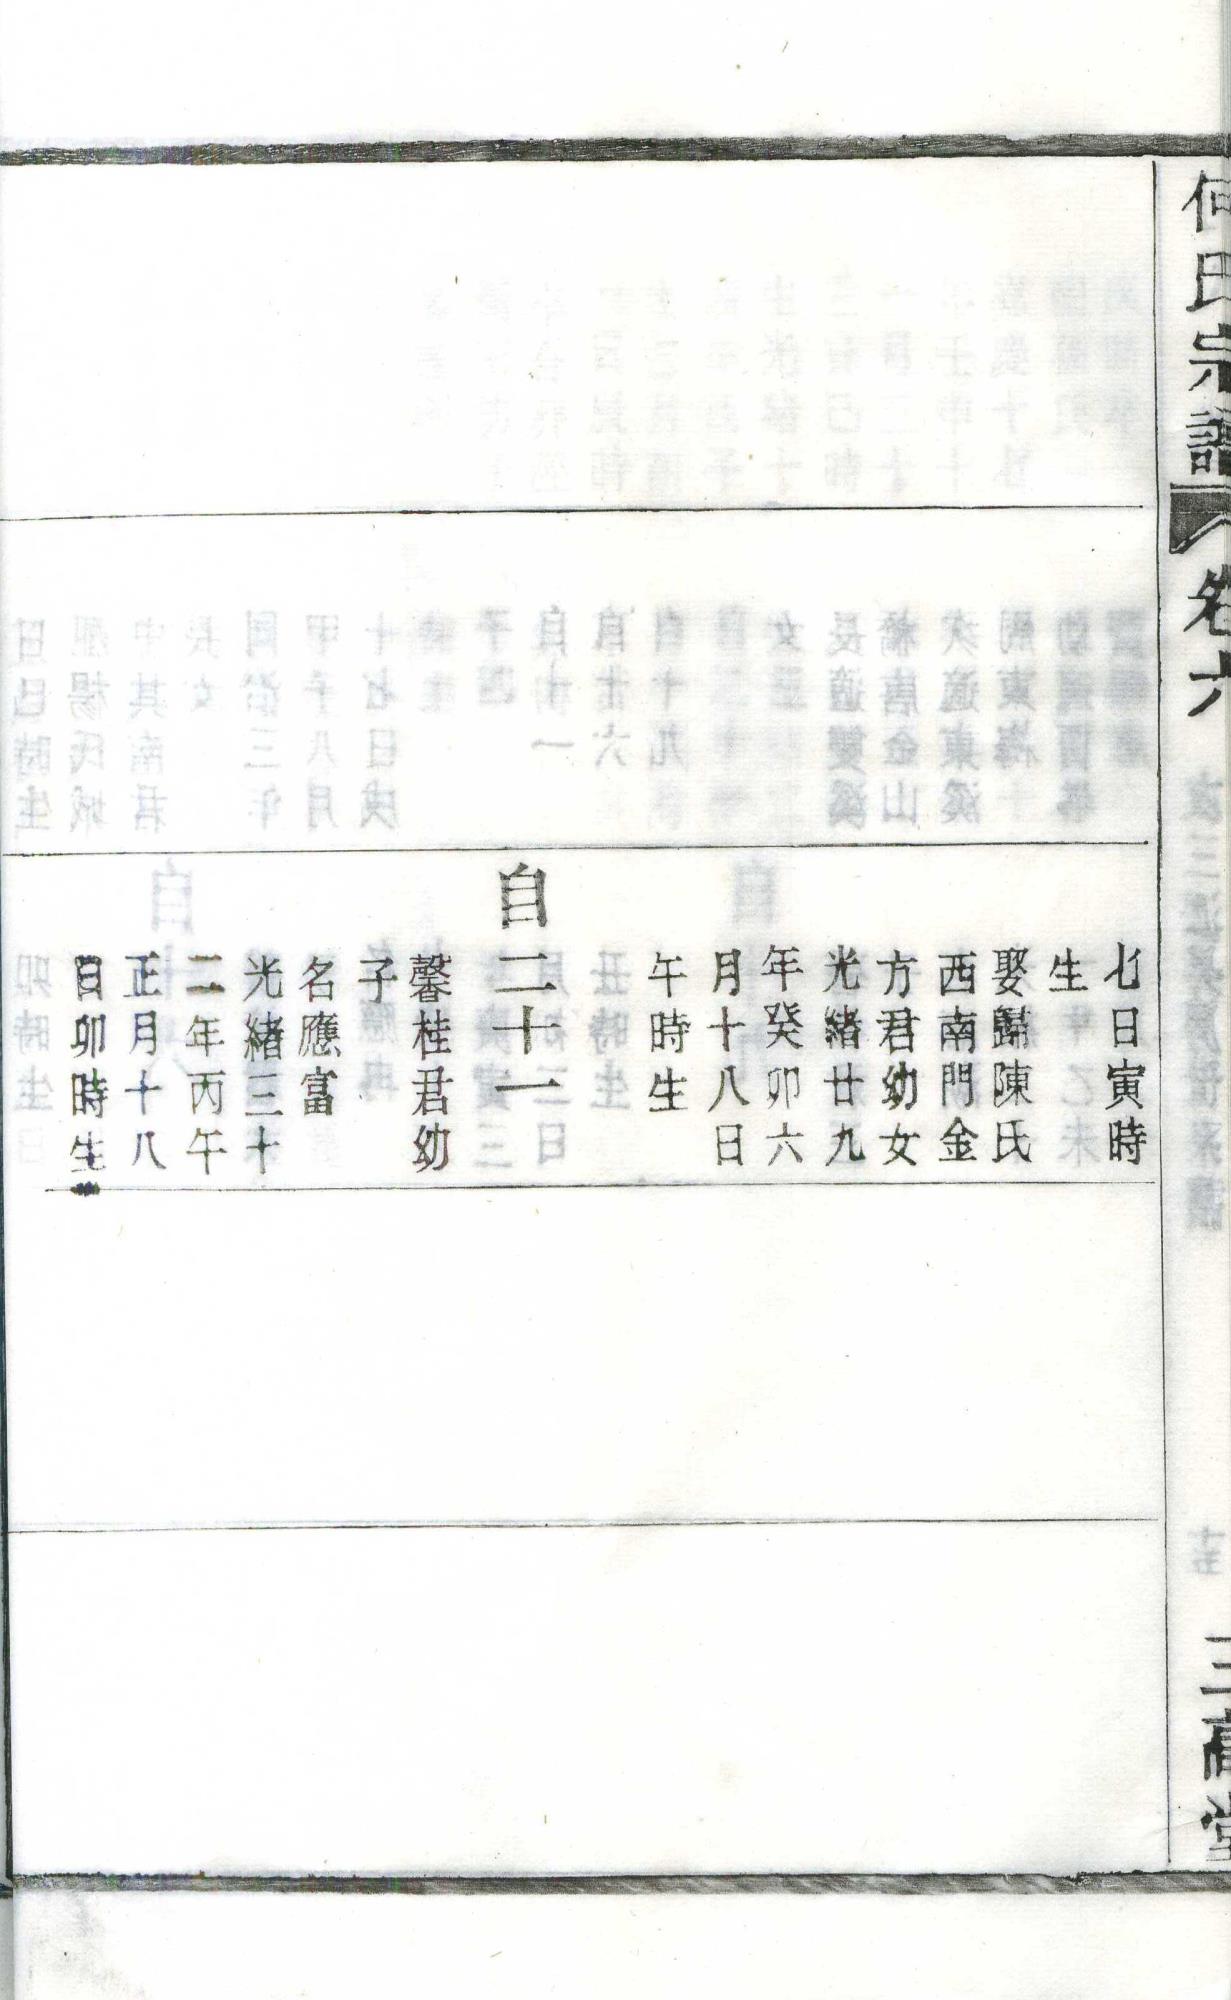 何氏宗譜
卷六
三高堂
七日寅時
生
娶歸陳氏
西南門金
方君幼女
光緒廿九
年癸卯六
月十八日
午時生
自二十一
馨桂君幼
子
名應富
光緒三十
二年丙午
正月十八
日卯時生